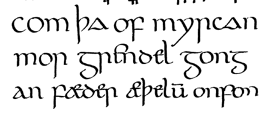 com þa of myrcan
mor grendel gong
an fæder æþelū onfon